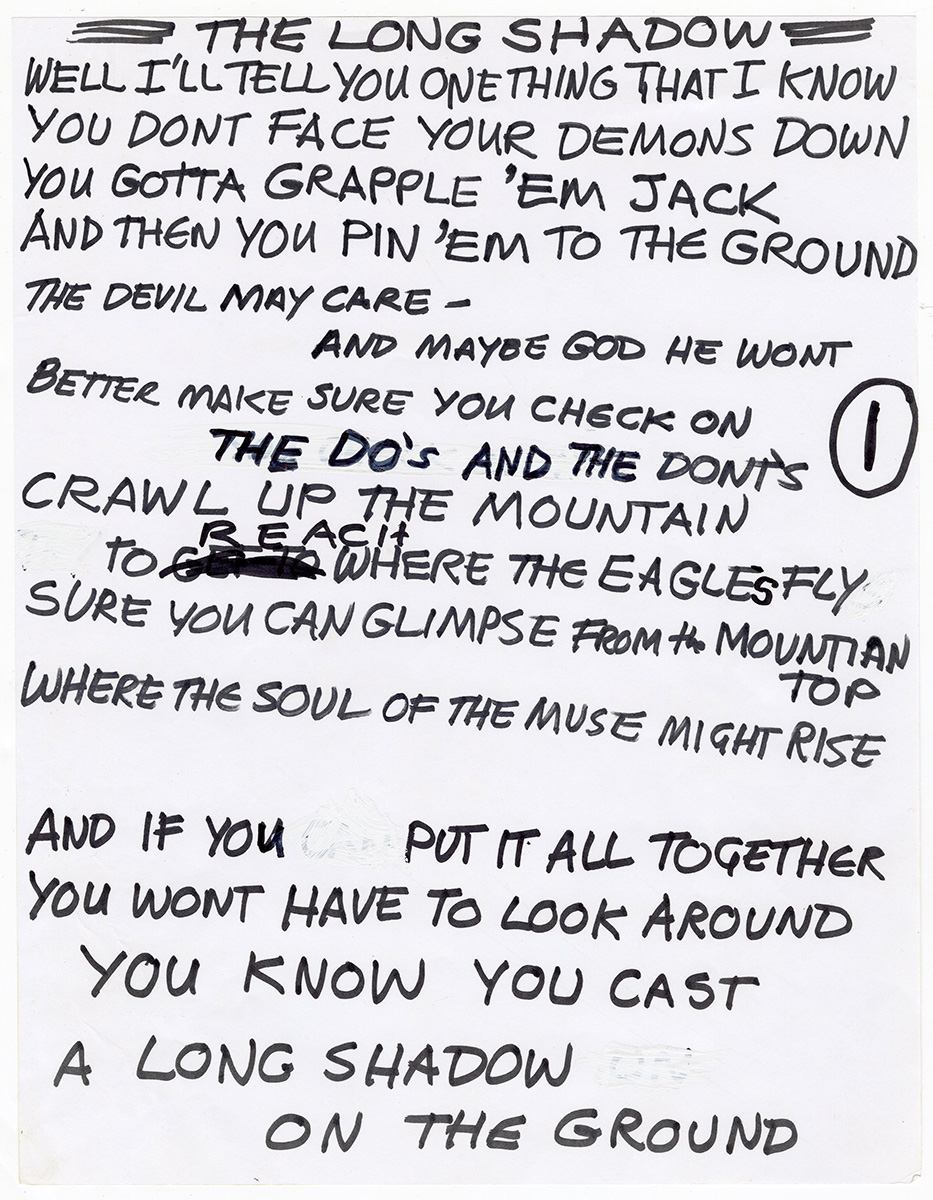 THE LONG SHADOW
WELL I'LL TELL YOU ONE THING THAT I KNOW
YOU DONT FACE YOUR DEMONS DOWN
YOU GOTTA GRAPPLE 'EM JACK
AND THEN YOU PIN 'EM TO THE GROUND
THE DEVIL MAY CARE –
AND MAYBE GOD HE WONT
BETTER MAKE SURE YOU CHECK ON
THE DO'S AND THE DONT'S
1
CRAWL UP THE MOUNTAIN
REACH
TO GET TO WHERE THE EAGLES FLY
SURE YOU CAN GLIMPSE FROM the MOUNTIAN
TOP
WHERE THE SOUL OF THE MUSE MIGHT RISE
AND IF YOU PUT IT ALL TOGETHER
YOU WONT HAVE TO LOOK AROUND
YOU KNOW YOU CAST
A LONG SHADOW
ON THE GROUND